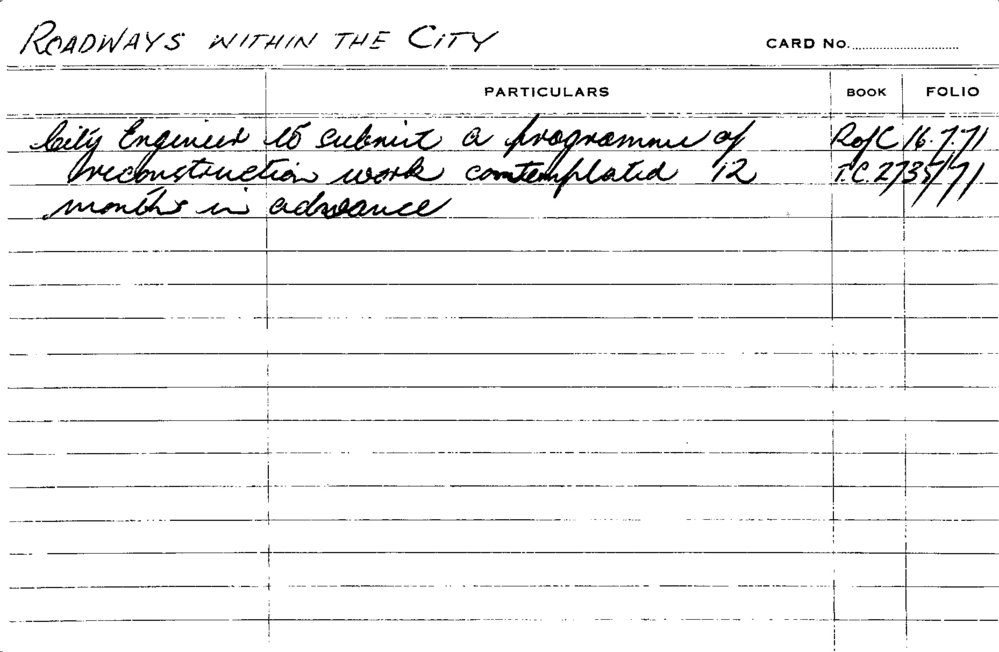 ROADWAYS WITHIN THE CITY CARD No.
PARTICULARS BOOK FOLIO
City Engineer to submit a programme of R of C 16.7.71
reconstruction work contemplated 12 T.C. 2735/71
months in advance